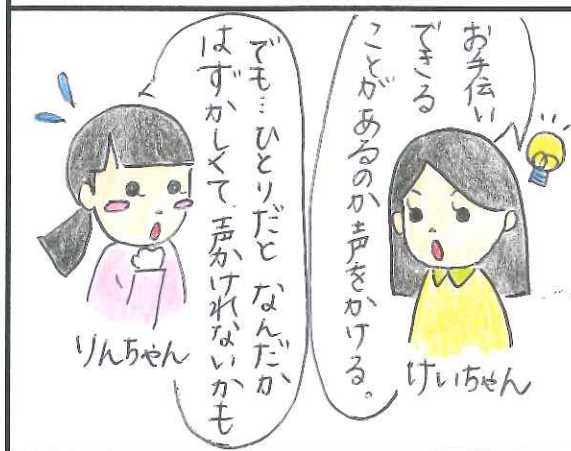 お手伝い
できる
ことがあるのか声をかける。
けいちゃん
でも…ひとりだと なんだか
はずかしくて、声かけれないかも
りんちゃん